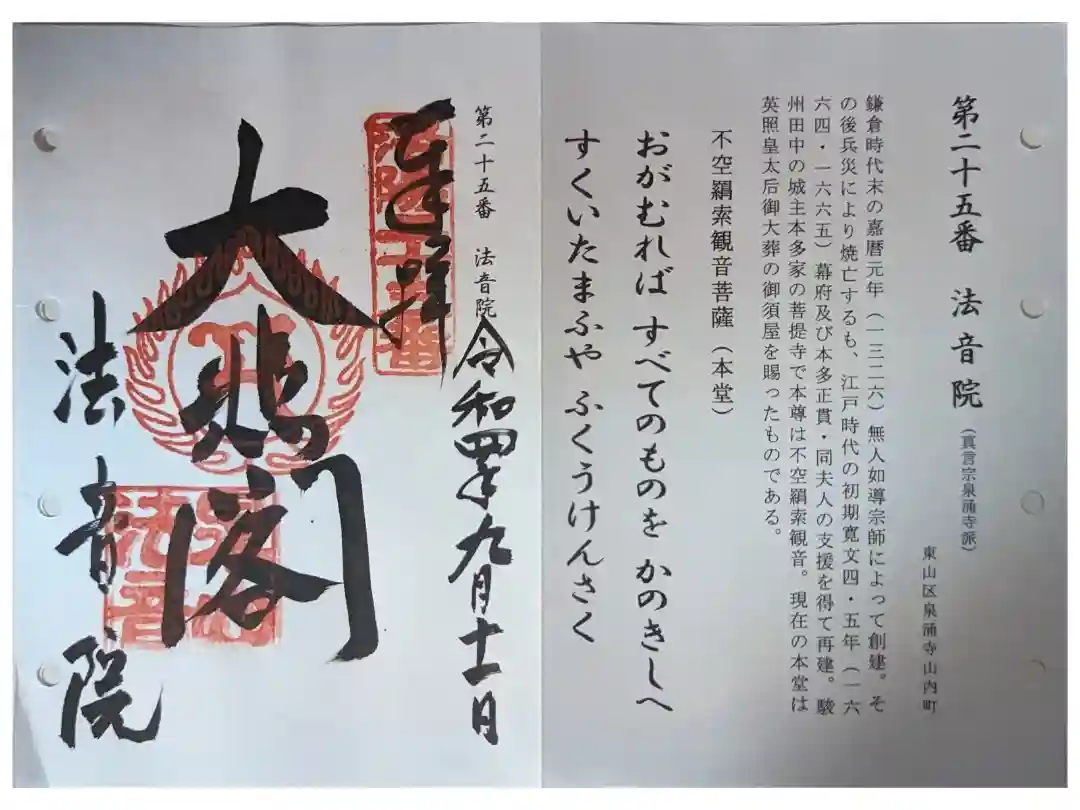 第二十五番 法音院
(真言宗泉涌寺派)
東山区泉涌寺山内町
鎌倉時代末の嘉暦元年(一三二六)無人如導宗師によって創建。そ
の後兵災により焼亡するも、江戸時代の初期寛文四・五年(一六
六四・一六六五)幕府及び本多正貫・同夫人の支援を得て再建。駿
州田中の城主本多家の菩提寺で本尊は不空羂索観音。現在の本堂は
英照皇太后御大葬の御須屋を賜ったものである。
不空羂索観音菩薩(本堂)
おがむれば すべてのものを かのきしへ
すくいたまふや ふくうけんさく
第二十五番 法音院
令和四年九月十一日
奉拝
大悲閣
法音院